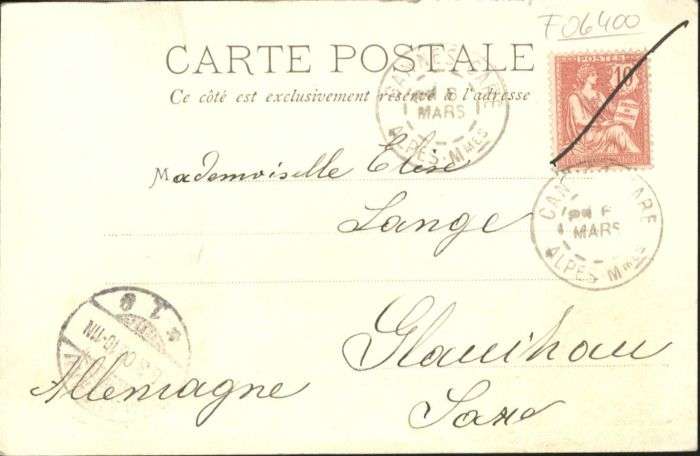 F06400
CARTE POSTALE
Ce côté est exclusivement réservé à l'adresse
POSTES
10
CANNES GARE
MARS
ALPES-Mmes
Mademoiselle Elise
Lange
CANNES GARE
MARS
ALPES Mmes
Glauchau
Allemagne
Saxe